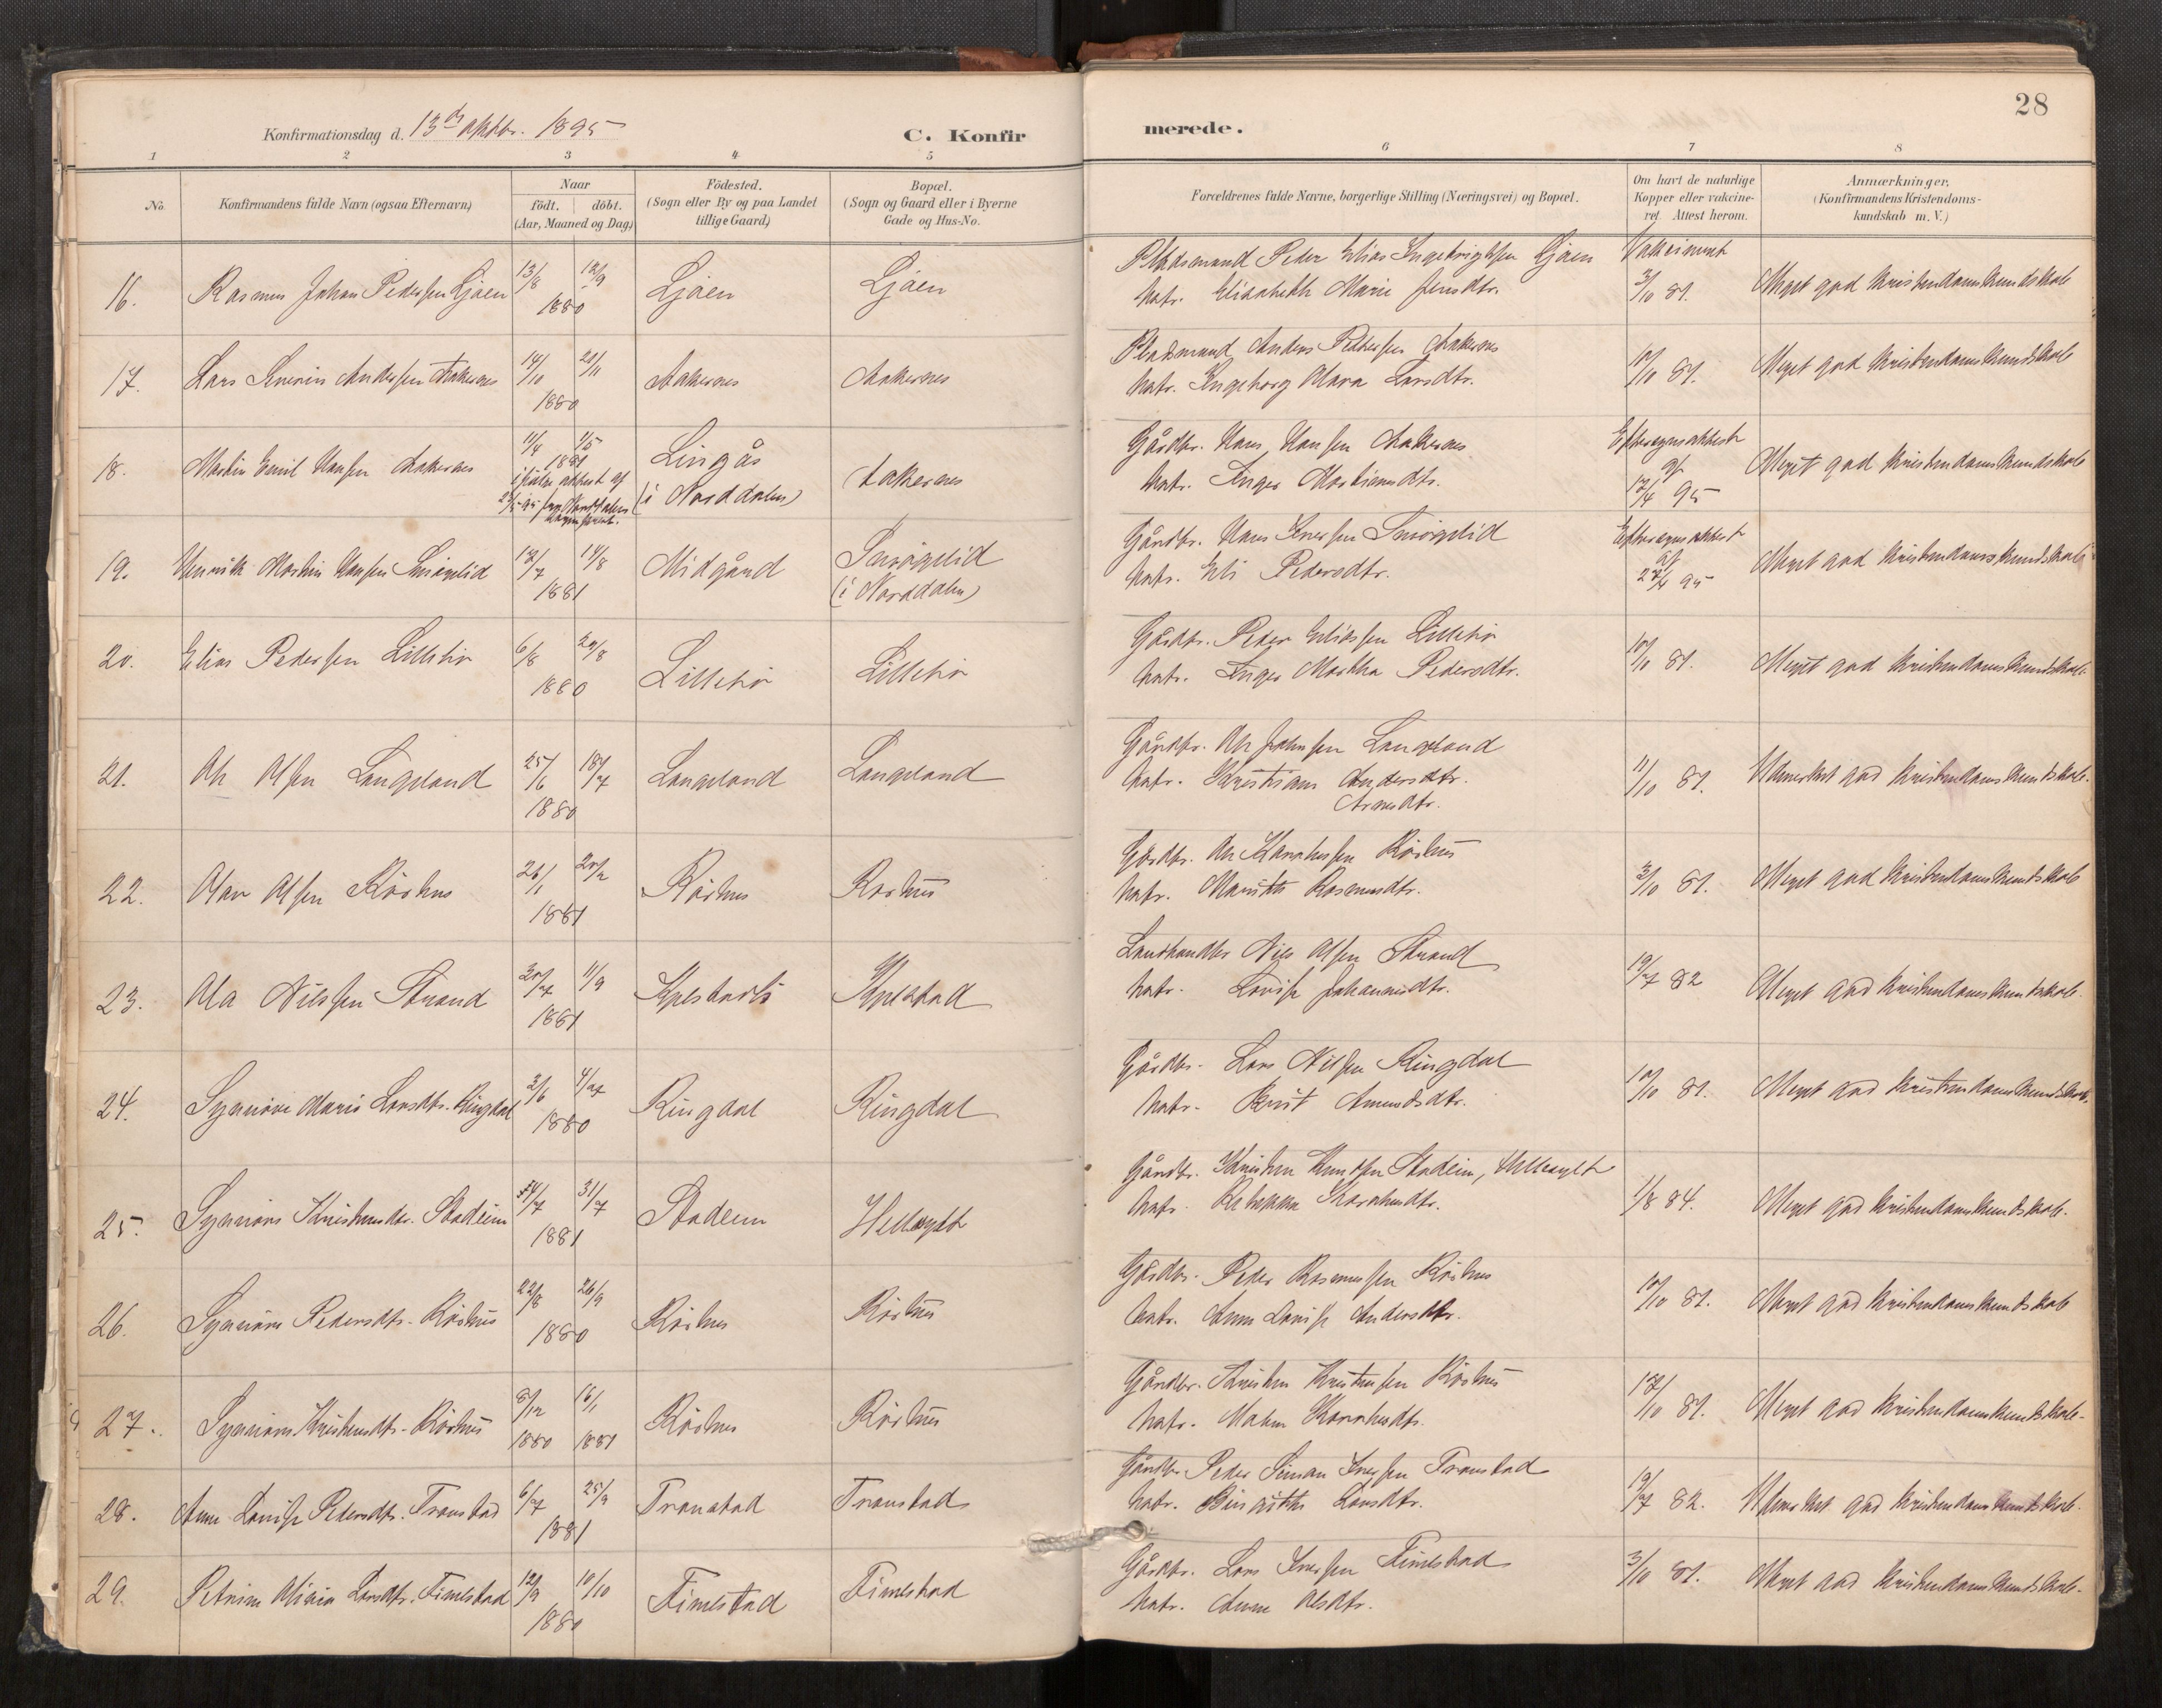 28
Konfirmationsdag d. 13de oktbr. 1895
C. Konfirmerede.
1 2 3 4 5 6 7 8
No.
Konfirmandens fulde Navn (ogsaa Efternavn)
Naar
födt. döbt.
(Aar, Maaned og Dag)
Födested.
(Sogn eller By og paa Landet
tillige Gaard)
Bopæl.
(Sogn og Gaard eller i Byerne
Gade og Hus-No.
Forældrenes fulde Navne, borgerlige Stilling (Næringsvei) og Bopæl.
Om havt de naturlige
Kopper eller vakcine-
ret. Attest herom.
Anmærkninger.
(Konfirmandens Kristendoms-
kundskab m. V.)
16. Rasmus Johan Pedersen Ljøen 13/8 12/9 1880 Ljøen Ljøen
Pladsmand Peder Elias Ingebrigtsen Ljøen
Hstr. Elisabeth Marie Jensdtr.
Vakcineret 3/10 81. Meget god Kristendomskundskab
17. Lars Severin Andersen Aakernes 14/10 21/11 1880 Aakernes Aakernes
Pladsmand Anders Pedersen Aakernes
Hstr. Ingeborg Olava Larsdtr.
10/10 81. Meget god Kristendomskundskab
18. Martin Emil Hansen Aakernes 11/4 1/5 1881
Lingås (i Norddalen) Aakernes
Gårdbr. Hans Hansen Aakernes
Hstr. Inger Martinusdtr.
Eftersynsattest af 12/4 95 Meget god Kristendomskundskab
19. Henrik Martin Hansen Smögelid 12/7 14/8 1881 Midgård Smögelid (i Norddalen)
Gårdbr. Hans Iversen Smögelid
Hstr. Eli Pedersdtr.
Eftersynsattest af 27/4 95 Meget god Kristendomskundskab
20. Elias Pedersen Lillebö 6/8 29/8 1880 Lillebö Lillebö
Gårdbr. Peder Eliassen Lillebö
Hstr. Inger Martha Pedersdtr.
10/10 81. Meget god Kristendomskundskab
21. Ole Olsen Langeland 25/6 18/7 1880 Langeland Langeland
Gårdbr. Ole Johnsen Langeland
Hstr. Kristiane Andersdtr.
Arnesdtr.
11/10 81. Udmerket god Kristendomskundskab.
22. Olav Olsen Röshus 26/1 20/2 1881 Röshus Röshus
Gårdbr. Ole Karolussen Röshus
Hstr. Marithe Rasmusdtr.
3/10 81. Meget god Kristendomskundskab
23. Ola Nilssen Strand 30/7 11/9 1881 Kjelstadli Kjelstad
Landhandler Nils Olsen Strand
Hstr. Lovise Johannesdtr.
19/7 82 Meget god Kristendomskundskab.
24. Synnöve Marie Larsdtr. Ringdal 3/6 4/7 1880 Ringdal Ringdal
Gårdbr. Lars Nilsen Ringdal
Hstr. Berit Amundsdtr.
10/10 81. Meget god Kristendomskundskab.
25. Synnöve Kristensdtr. Stadeim 31/7 1881 Stadeim Hellesylt
Gårdbr. Kristen Knudsen Stadeim, Hellesylt
Hstr. Rebekka
1/8 84. Meget god Kristendomskundskab.
26. Synnöve Pedersdtr. Röshus 22/8 26/9 1880 Röshus Röshus
Gårdbr. Peder Rasmussen Röshus
Hstr. Anne Lovise Andersdtr.
10/10 81. Meget god Kristendomskundskab
27. Synnöve Kristensdtr. Röshus 8/12 1880 16/1 1881 Röshus Röshus
Gårdbr. Kristen Kristensen Röshus
Hstr. Malene
10/10 81. Meget god Kristendomskundskab.
28. Anne Lovise Pedersdtr. Transtad 6/7 25/9 1881 Transtad Transtad
Gårdbr. Peder Simon Iversen Transtad
Hstr. Birgitthe Larsdtr.
19/7 82. Udmerket god Kristendomskundskab.
29. Petrine Olivia Larsdtr. Fivelstad 12/9 10/10 1880 Fivelstad Fivelstad
Gårdbr. Lars Iversen Fivelstad
Hstr. Anne Olsdtr.
3/10 81. Meget god Kristendomskundskab.